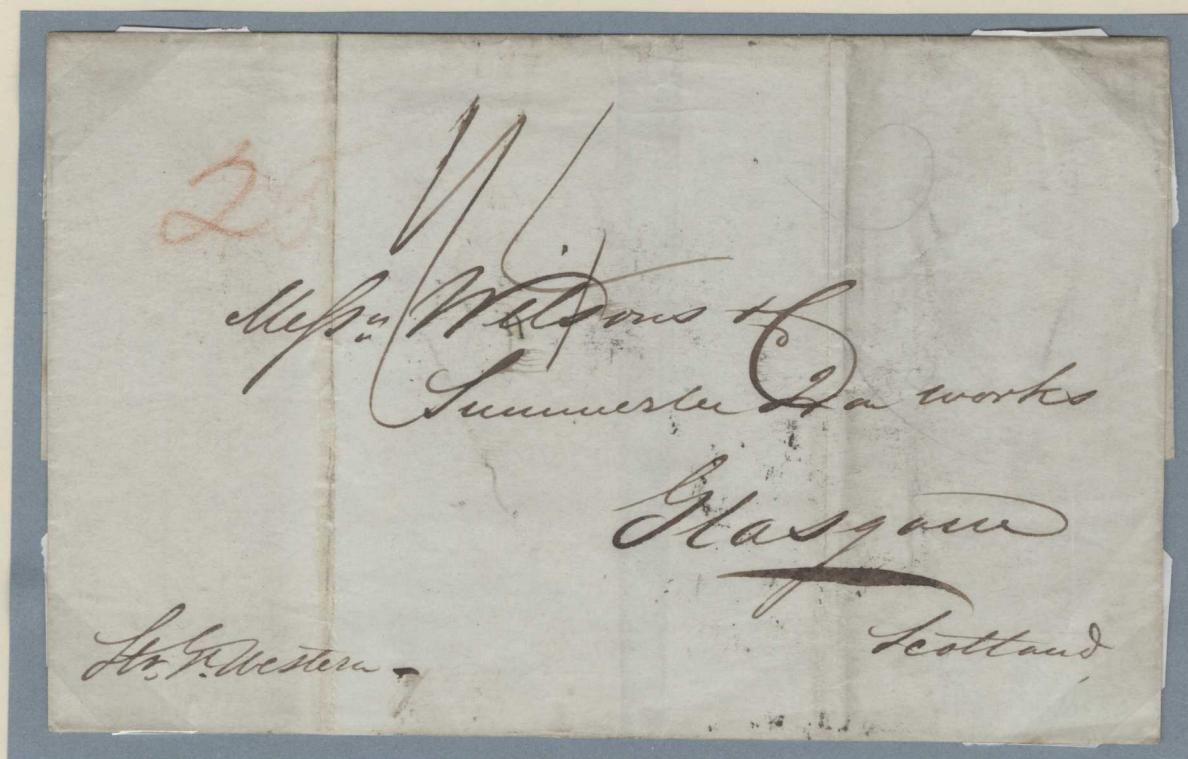 2
Messrs Wilsons & Co
Summerlee Iron works
Glasgow
Scotland
Str. Gt. Western